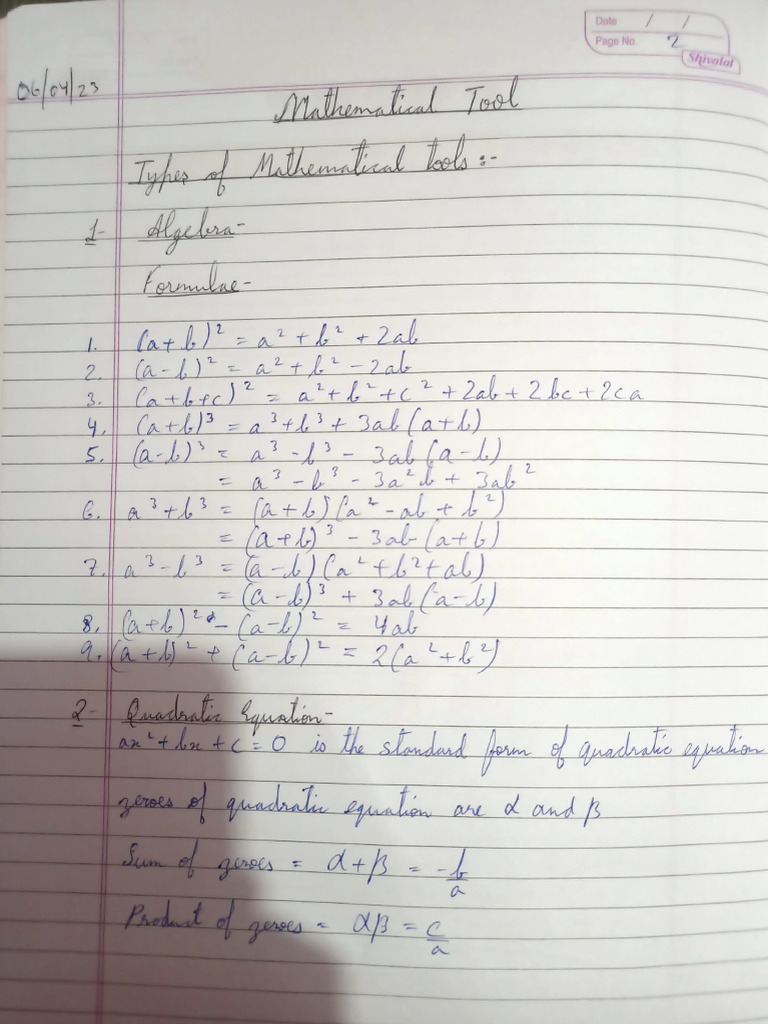 Date / /
Page No. 2
Shivalal
06/04/23
Mathematical Tool
Types of Mathematical tools :-
1- Algebra-
Formulae-
1. (a+b)² = a² + b² + 2ab
2. (a-b)² = a² + b² - 2ab
3. (a+b+c)² = a² + b² + c² + 2ab + 2bc + 2ca
4. (a+b)³ = a³ + b³ + 3ab(a+b)
5. (a-b)³ = a³ - b³ - 3ab(a-b)
= a³ - b³ - 3a²b + 3ab²
6. a³ + b³ = (a+b)(a² - ab + b²)
= (a+b)³ - 3ab(a+b)
7. a³ - b³ = (a-b)(a² + b² + ab)
= (a-b)³ + 3ab(a-b)
8. (a+b)² - (a-b)² = 4ab
9. (a+b)² + (a-b)² = 2(a² + b²)
2- Quadratic Equation-
ax² + bx + c = 0 is the standard form of quadratic equation
zeroes of quadratic equation are α and β
Sum of zeroes = α + β = -b/a
Product of zeroes = αβ = c/a